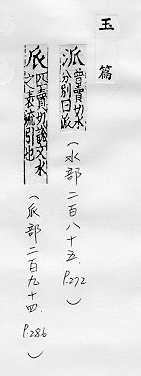 玉篇
派 普賣切水分別曰派
(水部二百八十五.P.272)
𠂢 匹賣切說文水之衺流別也
(𠂢部二百九十四.P.286)